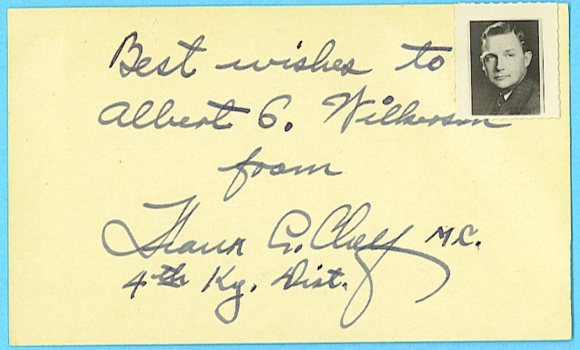 Best wishes to
Albert G. Wilkerson
from
Frank L. Chelf M.C.
4th Ky. Dist.